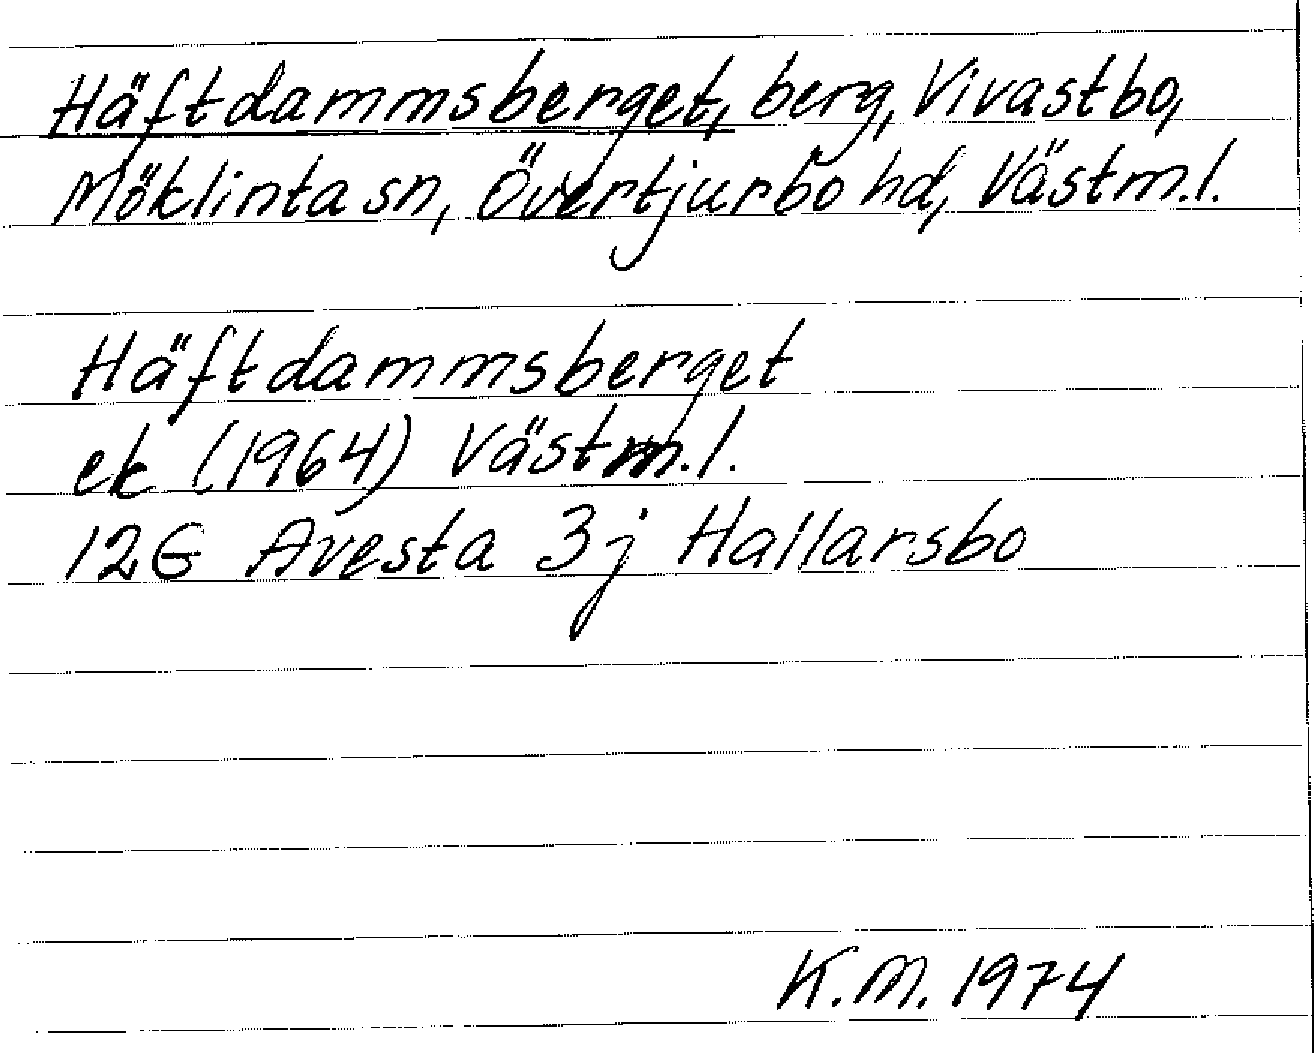 Häftdammsberget, berg, Vivastbo,
Möklinta sn, Övertjurbo hd, Västm.l.
Häftdammsberget
ek (1964) Västm.l.
12G Avesta 3j Hallarsbo
K.M. 1974